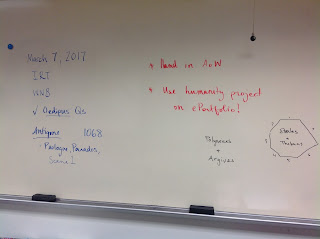 March 7, 2017
IRT
WNB
✓ Oedipus Qs
Antigone 1068
· Prologue, Parados,
Scene I
* Hand in AoW
* Use humanity project
on ePortfolio!
Polyneices
+
Argives
Eteocles
+
Thebans